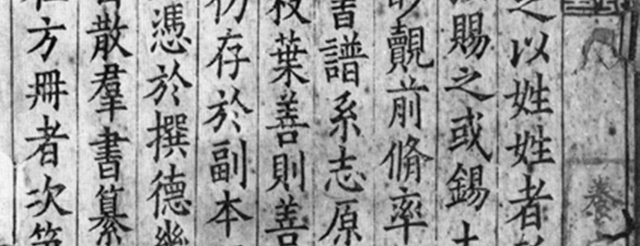 之以姓姓者
賜之或錫土
覿前脩率
書譜系志原
枝葉善則善
存於副本
憑於撰德幾
散羣書纂
方冊者次第